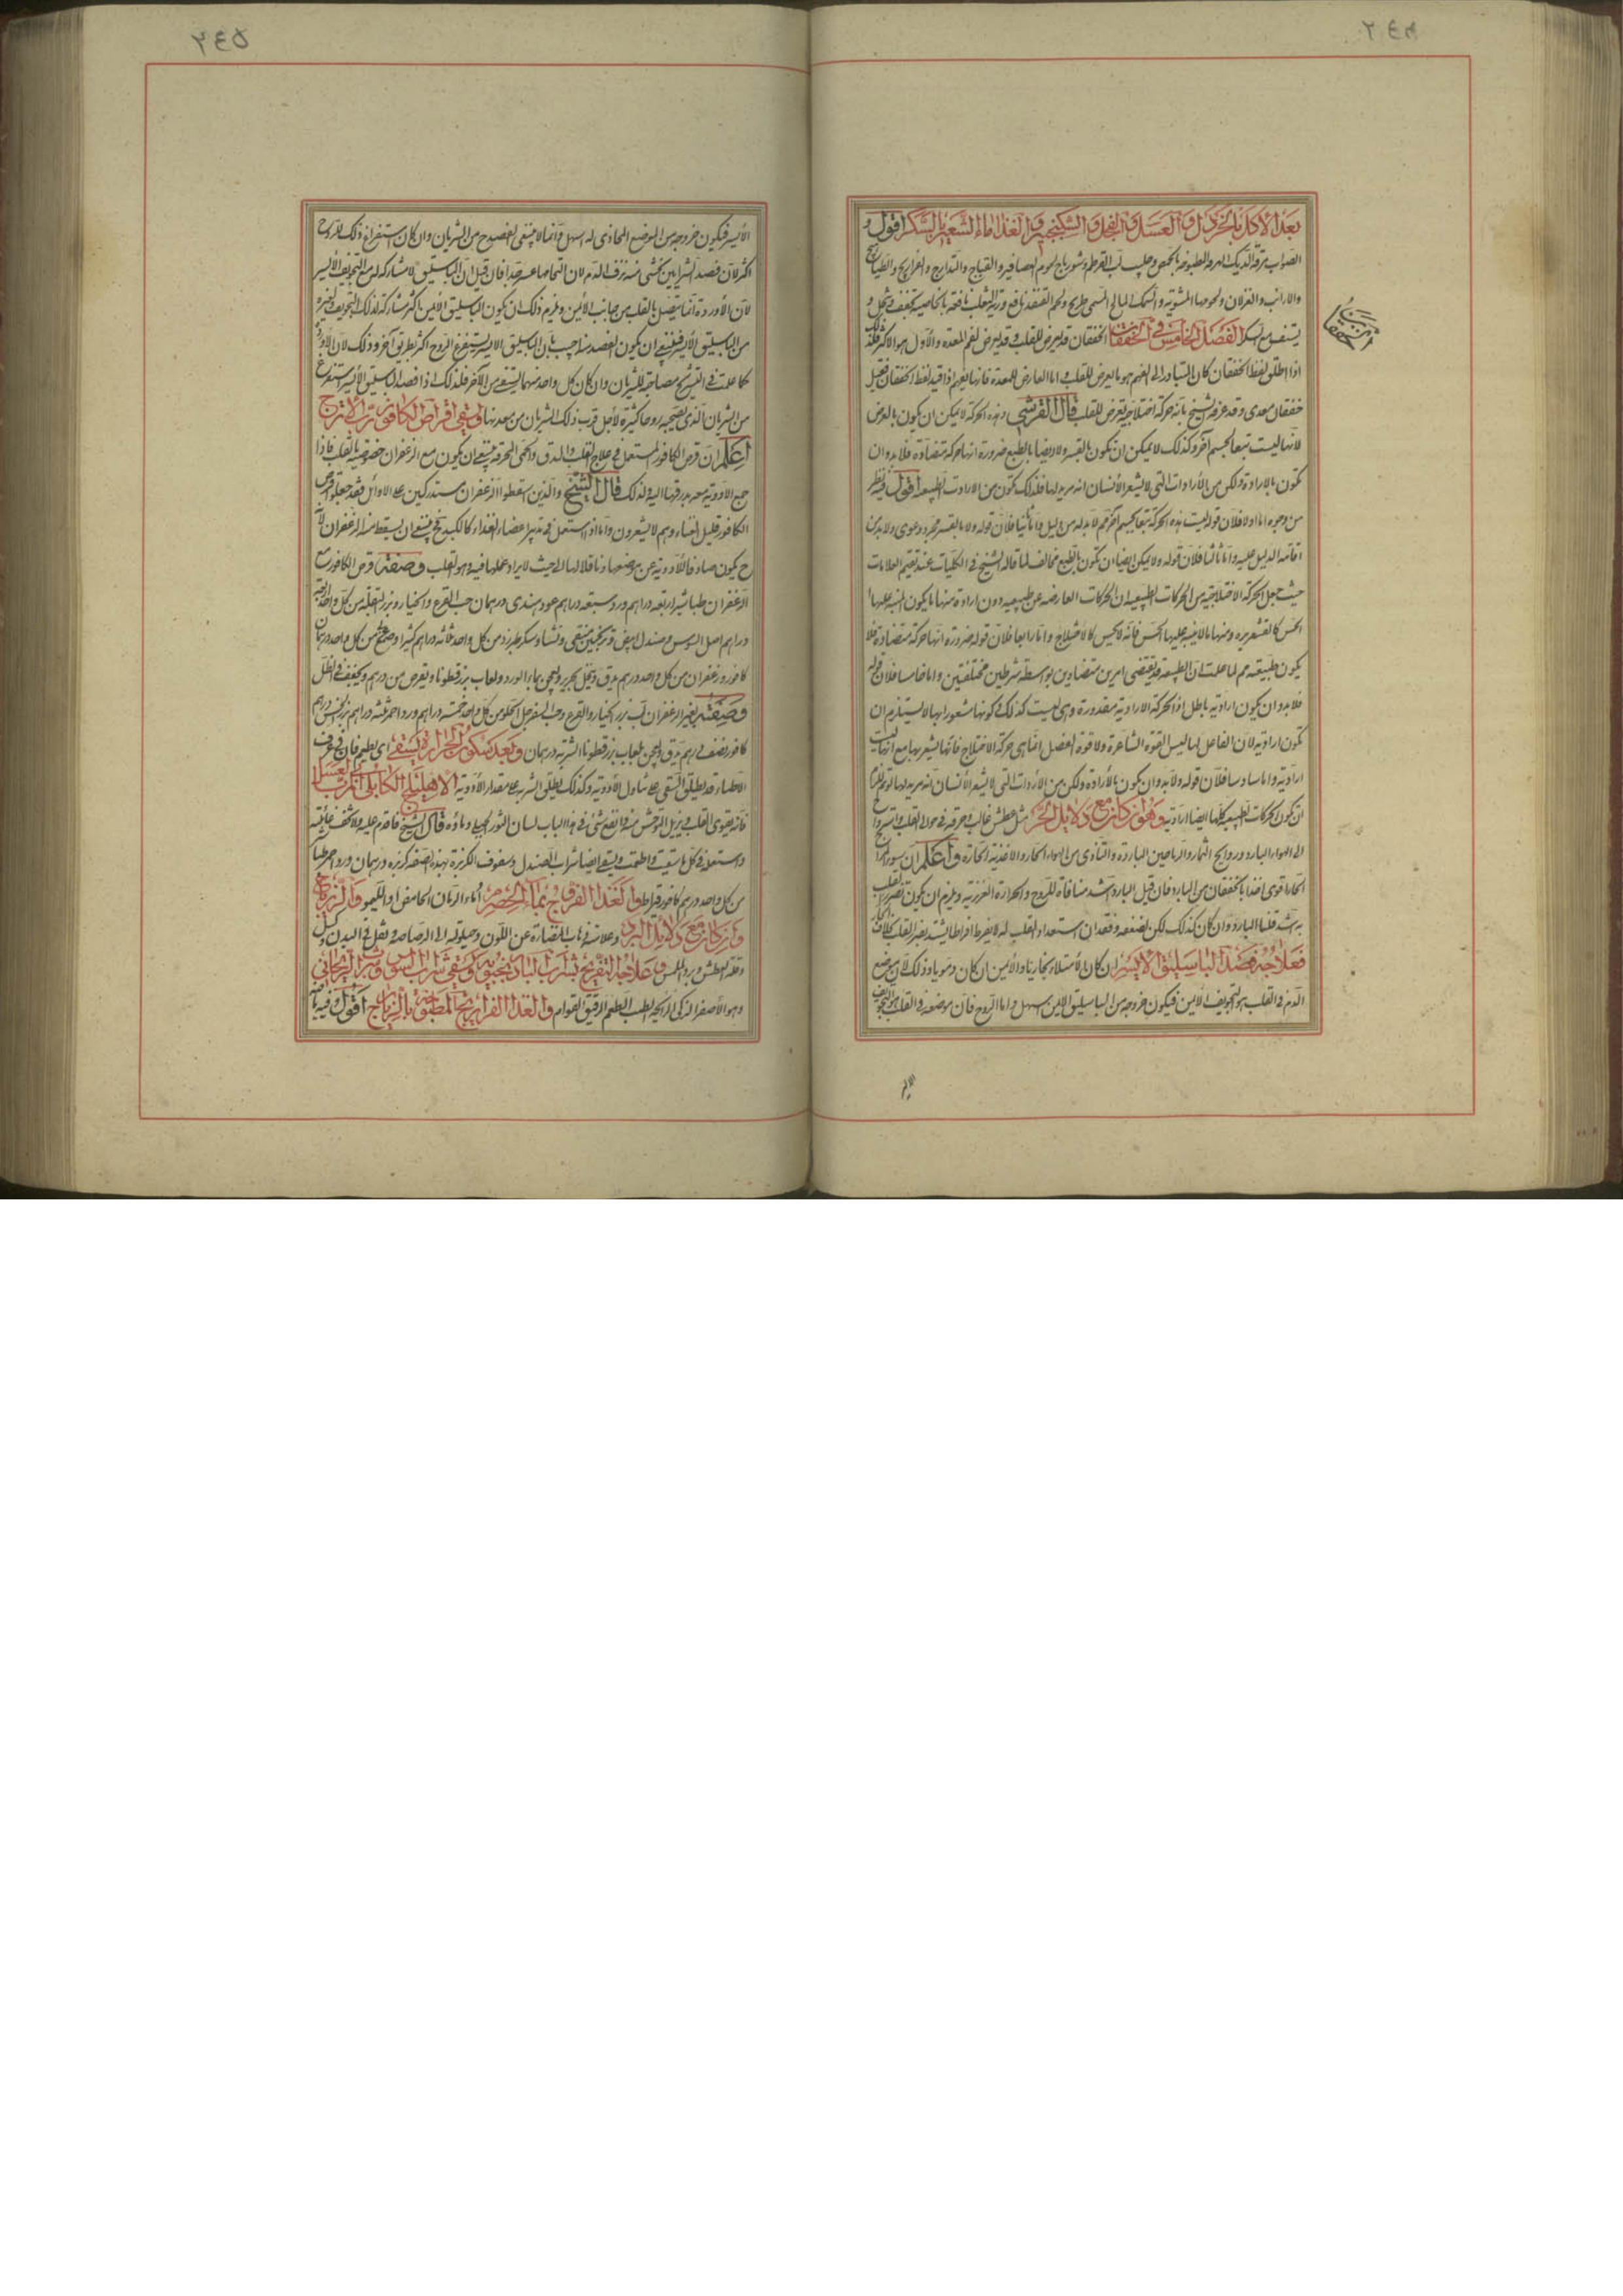 بعد الاكل بالخردل والعسل والفجل والسكنجبين والغذاء ماء الشعير بالسكر اقول و
الصواب مرقة الديك الهرمة المطبوخة بالحمص وحليب لب القرطم وشورباج لحوم العصافير والقباج والتدارج والفراريج
والارانب والغزلان ولحومها المشوية والسمك المالح المسمى طريخ ولحم القنفذ نافع ورية الثعلب نافعة بالخاصية تجفف
يستف مع السكر الفصل الخامس في الخفقان الخفقان قد يعرض للقلب وقد يعرض لفم المعدة والأول هو الاكثر فلذلك
اذا اطلق لفظ الخفقان كان المتبادر الى الفهم هو ما يعرض للقلب واما العارض للمعدة فانما يفهم اذا قيد لفظ الخفقان فقيل
خفقان معدى وقد عرفه الشيخ بانه حركة اختلاجية تعرض للقلب قال القرشي وهذه الحركة لا يمكن ان يكون بالعرض
لانها ليست تبعا لجسم آخر وكذلك لا يمكن ان تكون بالقسر ولا ايضا بالطبع ضرورة انها حركة متضادة فلا بد وان
تكون بالارادة ولكن من الأرادات التى لا يشعر الأنسان انه مريد لها فلذلك تكون من الارادات الطبيعية اقول فيه نظر
من وجوه اما اولا فلان قوله ليست هذه الحركة تبعا لجسم آخر مما لا بد له من دليل واما ثانيا فلان قوله ولا بالقسر مجرد دعوى ولا بد من
اقامة الدليل عليه واما ثالثا فلان قوله ولا يمكن ايضا ان تكون بالطبع مخالف لما قاله الشيخ فى الكليات عند تقسيم العلامات
حيث جعل الحركة الاختلاجية من الحركات الطبيعية ان الحركات العارضة عن طبيعة دون ارادة منها ما يكون المنبه عليها
الحس كالقشعريرة ومنها ما لا ينبه عليها الحس فانه لا يحس كالاختلاج واما رابعا فلان قوله ضرورة انها حركة متضادة فلا
يكون طبيعية مم لما علمت ان الطبيعة قد تقتضى امرين متضادين بواسطة شرطين مختلفتين واما خامسا فلان قوله
فلا بد وان يكون ارادية باطل اذ الحركة الارادية مقدورة وهى ليست كذلك وكونها مشعورا بها لا يستلزم ان
تكون ارادية لان الفاعل لها ليس القوة الشاعرة ولا قوة العضل اما هى حركة الاختلاج فانها يشعر بها مع انها ليست
ارادية واما سادسا فلان قوله ولا بد وان يكون بالأرادة ولكن من الأرادات التى لا يشعر الأنسان انه مريد لها
ان تكون الحركات الطبيعية كلها ايضا ارادية وهو ان كان مع دلايل الحر مثل عطش غالب وحرقة فى حوالى القلب
الى الهواء البارد وروايح الثمار والرياحين الباردة والتأذى من الهواء الحار والاغذية الحارة واعلم ان سوء المزاج
الحار اقوى اخذا بالخفقان من البارد فان قيل البارد اشد منافاة للروح والحرارة الغريزية ويلزم ان يكون تضرر القلب
به اشد قلنا البارد وان كان كذلك لكن لضعفه وفقدان استعداد القلب له لا يفرط افراطا يشتد تضرر القلب بخلاف الحار
فعلاجه فصد الباسليق الايسر ان كان الأمتلاء بخاريا والأيمن ان كان دمويا وذلك لان موضع
الدم فى القلب هو التجويف الأيمن فيكون خروجه من الباسليق الايمن اسهل واما الروح فان موضعه فى القلب هو التجويف
الأيسر فيكون خروجه من الموضع المحاذى له اسهل وانما لا ينبغى العضو من الشريان وان كان استفراغ ذلك للروح
اكثر لان فصد الشرايين يخشى منه نزف الدم لان التحامها عسر جدا فان قيل ان الباسليق لا مشاركة له مع التجويف الايسر
لان الأوردة انما يتصل بالقلب من جانب الأيمن ويلزم ذلك ان يكون الباسليق الأيمن اكثر مشاركة لذلك التجويف وغيره
من الباسليق الأيسر فينبغى ان يكون الفصد منه اجيب بان الباسليق الايسر يستفرغ الروح اكثر بطريق آخر وذلك لان الاوردة
كما علمت فى التشريح مصاحبة للشريان وان كان كل واحد منهما يستقى من الآخر فلذلك اذا فصد الباسليق الأيسر استفرغ
من الشريان الذى يصحبه روحا كثيرة لأجل قرب ذلك الشريان من معدنها ويسقى اقراص الكافور برب الاترج
اعلم ان قرص الكافور المستعمل فى علاج القلب والدق والحمى المحرقة ينبغى ان يكون مع الزعفران خصوصية بالقلب فاذا
جمع الأدوية معه بدرقها اليه ولذلك قال الشيخ والذين اسقطوا الزعفران مستدركين على الأوائل فقد جعلوا قرص
الكافور قليل الغناء وهم لا يشعرون واما لو استعمل فى تدبير اعضاء الغذاء كالكبد فينبغى ان يسقط منه الزعفران لانه
ح يكون صارفا للأدوية عن موضعها وناقلا لها الى حيث لا يراد عملها فيه وهو القلب وصفته قرص الكافور مع
الزعفران طباشير اربعة دراهم ورد سبعة دراهم عود هندى درهمان حب القرع والخيار وبزر البقلة من كل واحد
دراهم اصل السوس وصندل ابيض وترنجبين منقى ونشاء وسكر طبرزد من كل واحد ثلثة دراهم كثيرا وصمغ من كل واحد درهمان
كافور وزعفران من كل واحد درهم يدق وينخل بحرير ويعجن بماء الورد ولعاب بزرقطونا ويقرص من درهم ويجفف فى الظل
وصفته بغير الزعفران لب بزر الخيار والقرع وحب السفرجل الحلو من كل واحد خمسة دراهم ورد احمر ثلثة دراهم بزر الخس
كافور نصف درهم يدق ويعجن بلعاب بزرقطونا الشربة درهمان وبعد سكون الحرارة يسقى اى يطعم فان فى عرف
الاطباء قد يطلق السقى على تناول الأدوية وكذلك يطلق الشرب على مقدار الأدوية الاهليلج الكابلي المربى بالعسل
فانه يقوى القلب ويزيل التوحش منه وانفع شئ فى هذا الباب لسان الثور الجبلى وماؤه قال الشيخ فاقدم عليه ولا تخف غائلته
واستعمله فى كل ما سقيت واطعمت ويسقى ايضا شراب الصندل وسفوف الكزبرة بهذه الصفة كزبرة درهمان ورد احمر طبا
من كل واحد درهم كافور قيراط والغذاء الفروج بماء الحصرم او ماء الرمان الحامض او الليمو والزرباج
وان كان مع دلايل البرد وعلامته ذهاب النضارة عن اللون وميلوته الى الرصاصة وثقل فى البدن وكسل
وقلة العطش وبرد الملمس وعلاجه التفريح بشراب الباذرنجبويه ويسقى شراب السوس وشراب الريحاني
وهو الأصفر الزكى الرائحة الطيب الطعم الرقيق القوام والغذاء الفراريج المطبوخة بالزرباج اقول وفيه